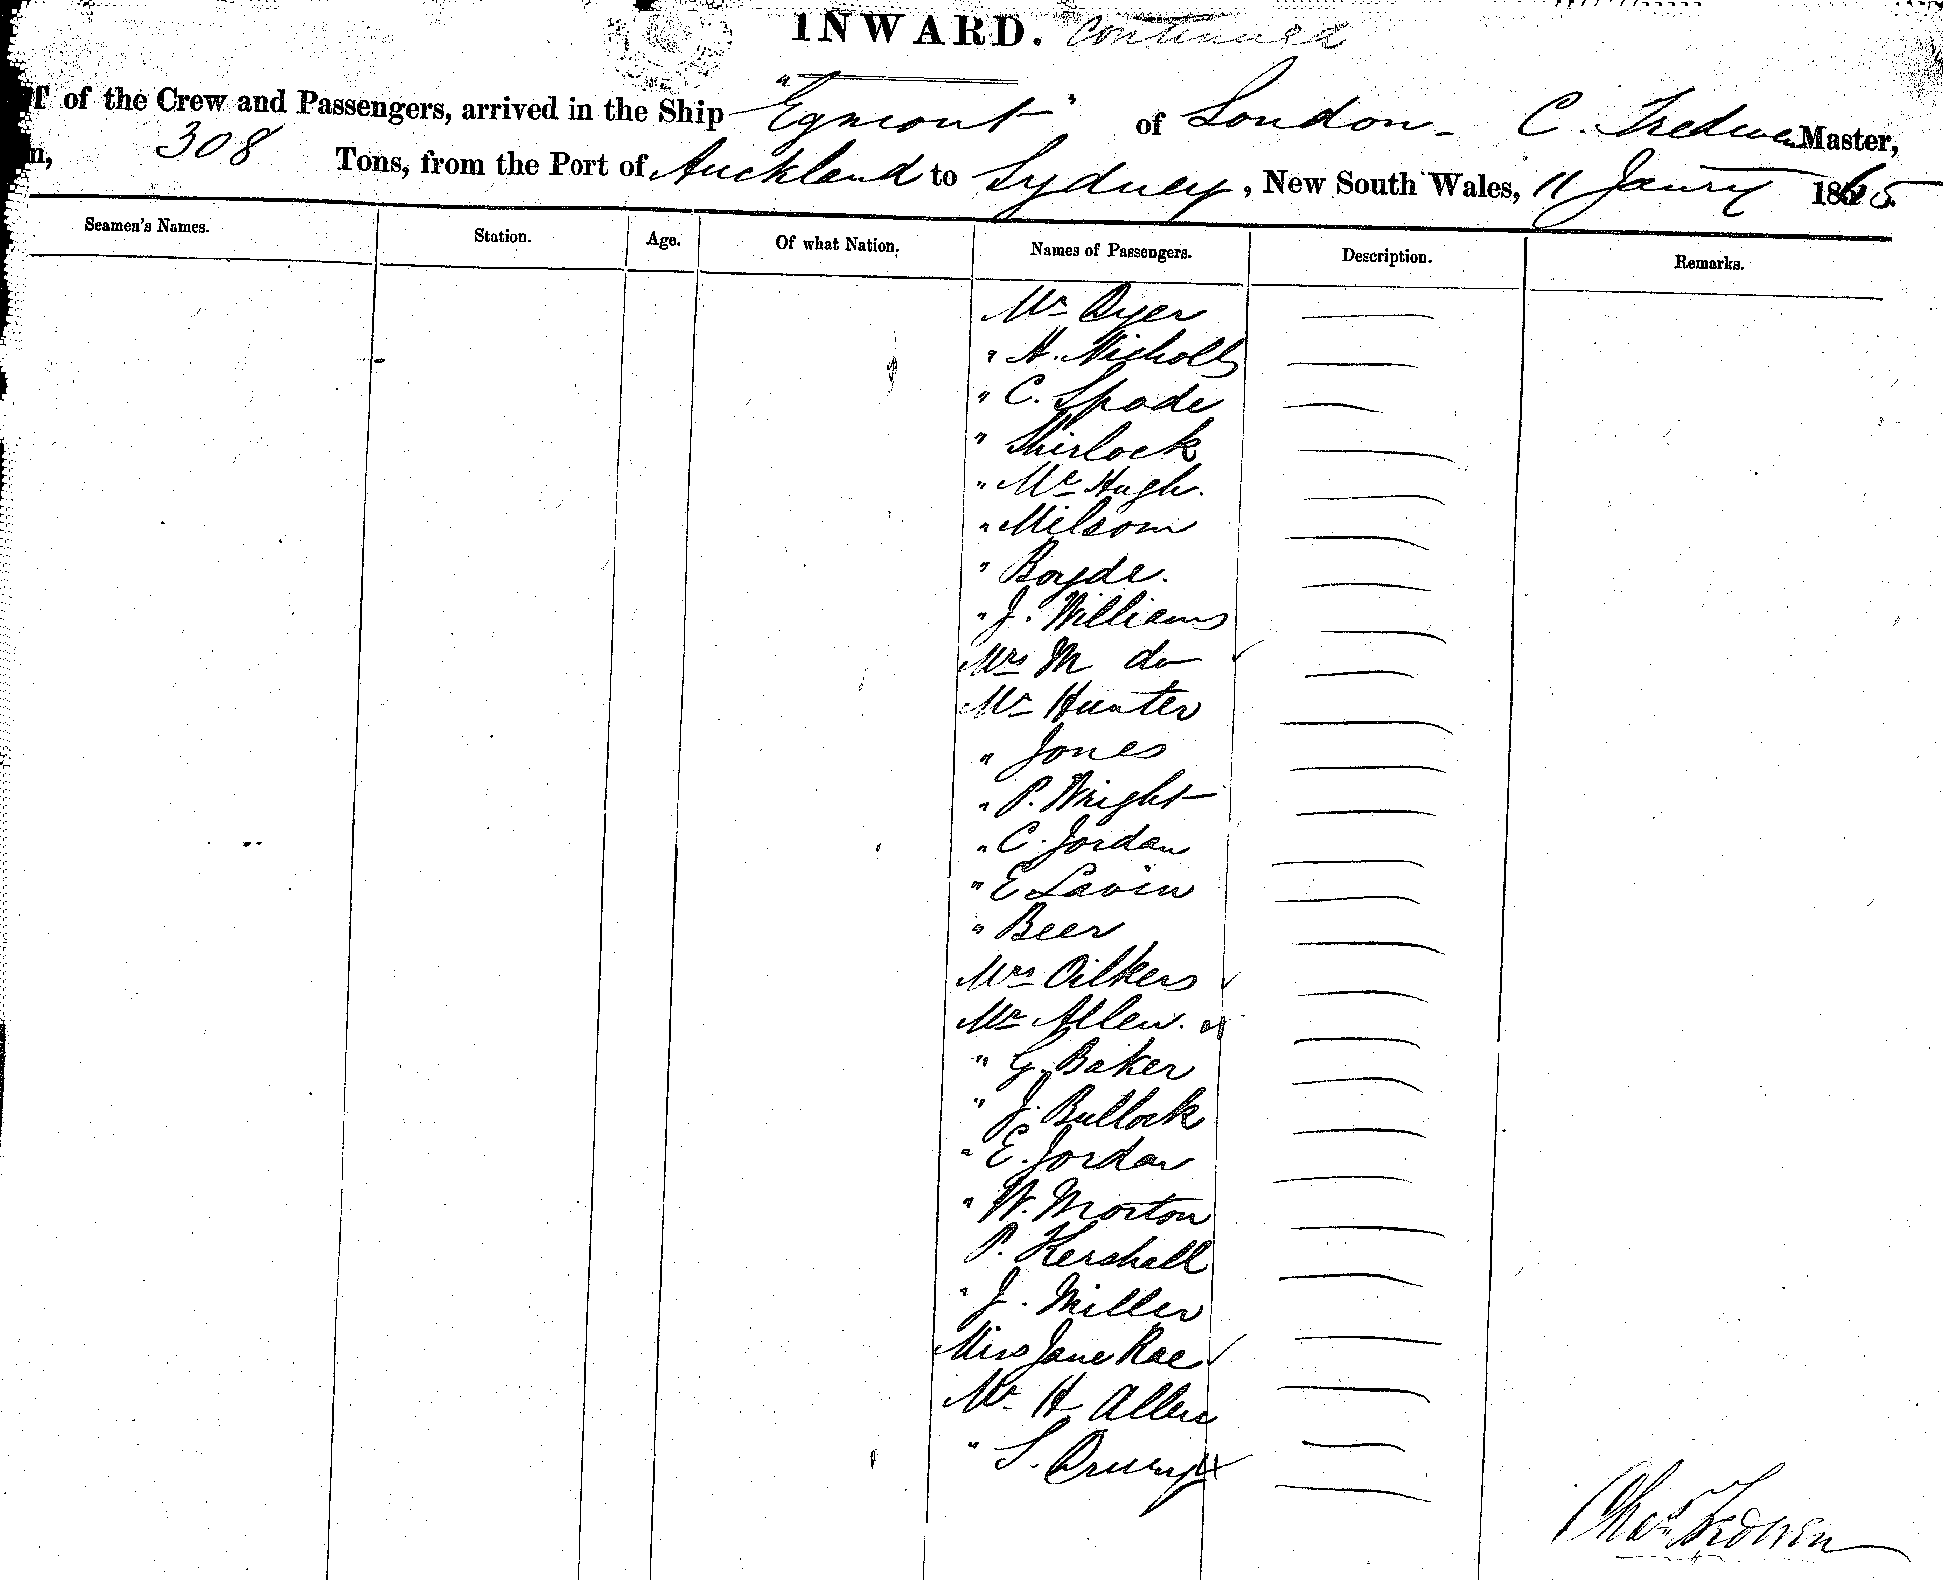 INWARD. Continued
of the Crew and Passengers, arrived in the Ship "Egmont" of London - C. Tredwen Master,
308 Tons, from the Port of Auckland to Sydney, New South Wales, 11 Janry 1865
Seamen's Names. Station. Age. Of what Nation. Names of Passengers. Description. Remarks.
Mr Dyer
" H. Nicholls
" C. Spode
" Shirlock
" Mc Hugh.
" Milsom
" Boyde.
" J. Williams
Mrs M do
Mr Hunter
" Jones
" P. Wright
" C. Jordan
" E Lavin
" Beer
Mrs Oilkers
Mr Allen.
" G. Baker
" J. Bullock
" E. Jordan
" W. Morton
P. Kershall
" J. Miller
Miss Jane Rae
Mr H Allen
" S.
Chas Tredwen